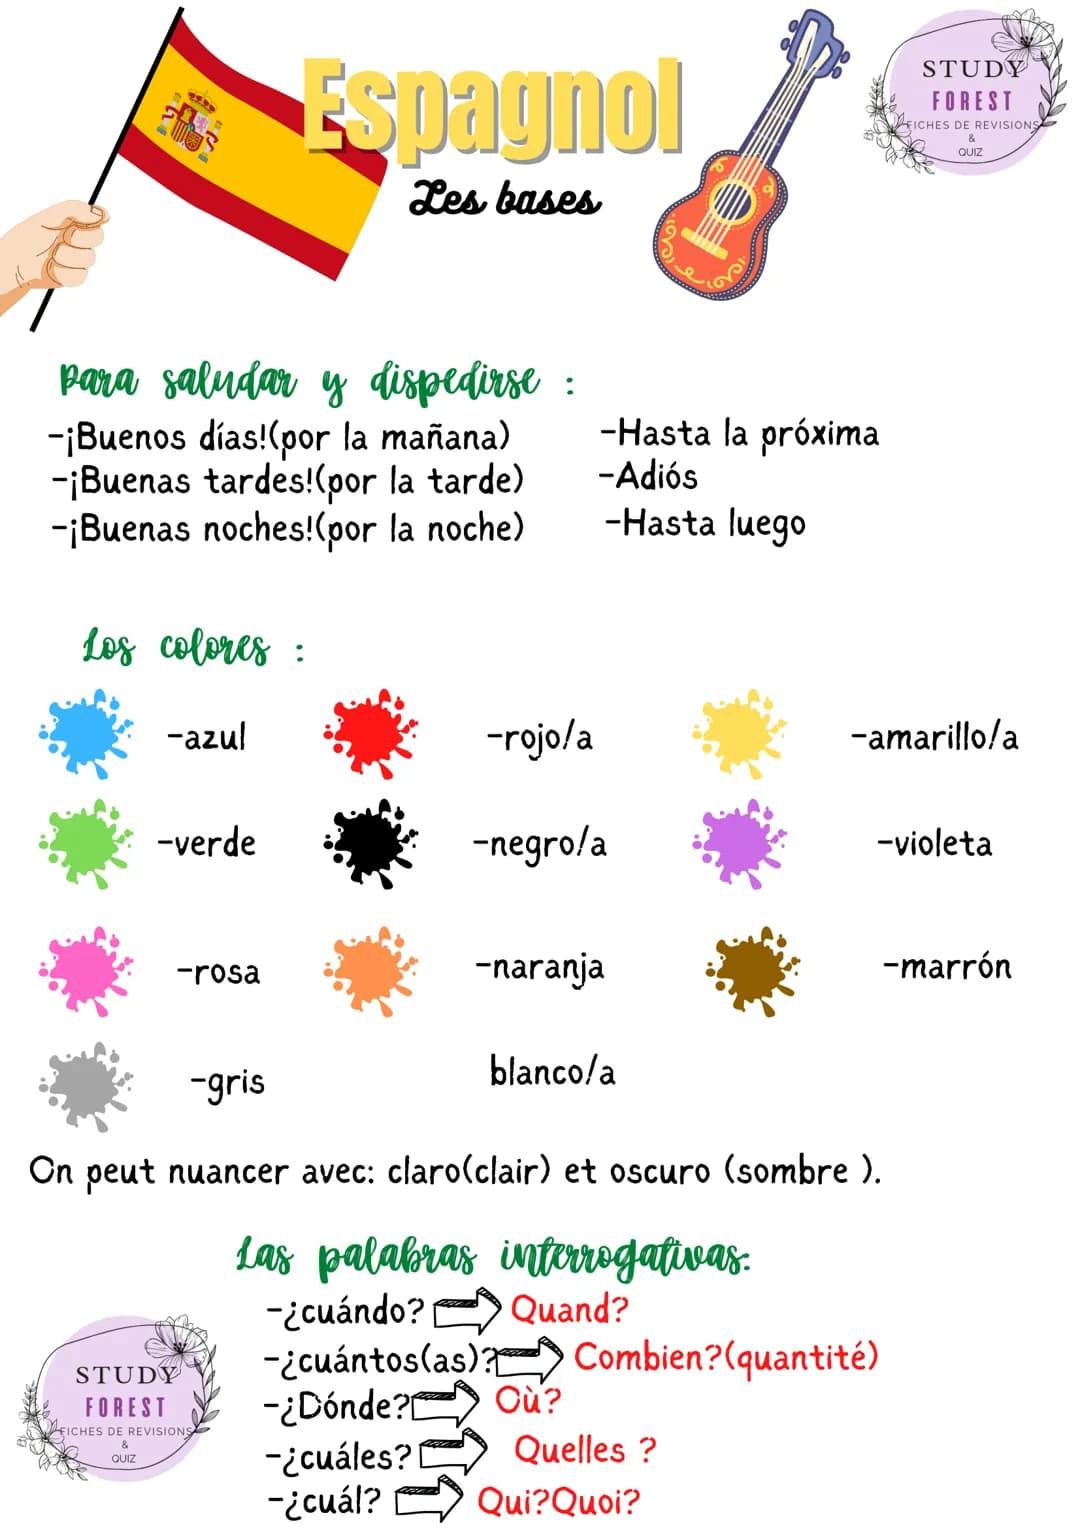 Espagnol
Les bases
STUDY
FOREST
FICHES DE REVISIONS
&
QUIZ
Para saludar y dispedirse :
-¡Buenos días!(por la mañana)
-¡Buenas tardes!(por la tarde)
-¡Buenas noches!(por la noche)
-Hasta la próxima
-Adiós
-Hasta luego
Los colores :
-azul
-rojo/a
-amarillo/a
-verde
-negro/a
-violeta
-rosa
-naranja
-marrón
-gris
blanco/a
On peut nuancer avec: claro(clair) et oscuro (sombre ).
Las palabras interrogativas:
-¿cuándo? Quand?
-¿cuántos(as)? Combien?(quantité)
-¿Dónde? Où?
-¿cuáles? Quelles ?
-¿cuál? Qui?Quoi?
STUDY
FOREST
FICHES DE REVISIONS
&
QUIZ